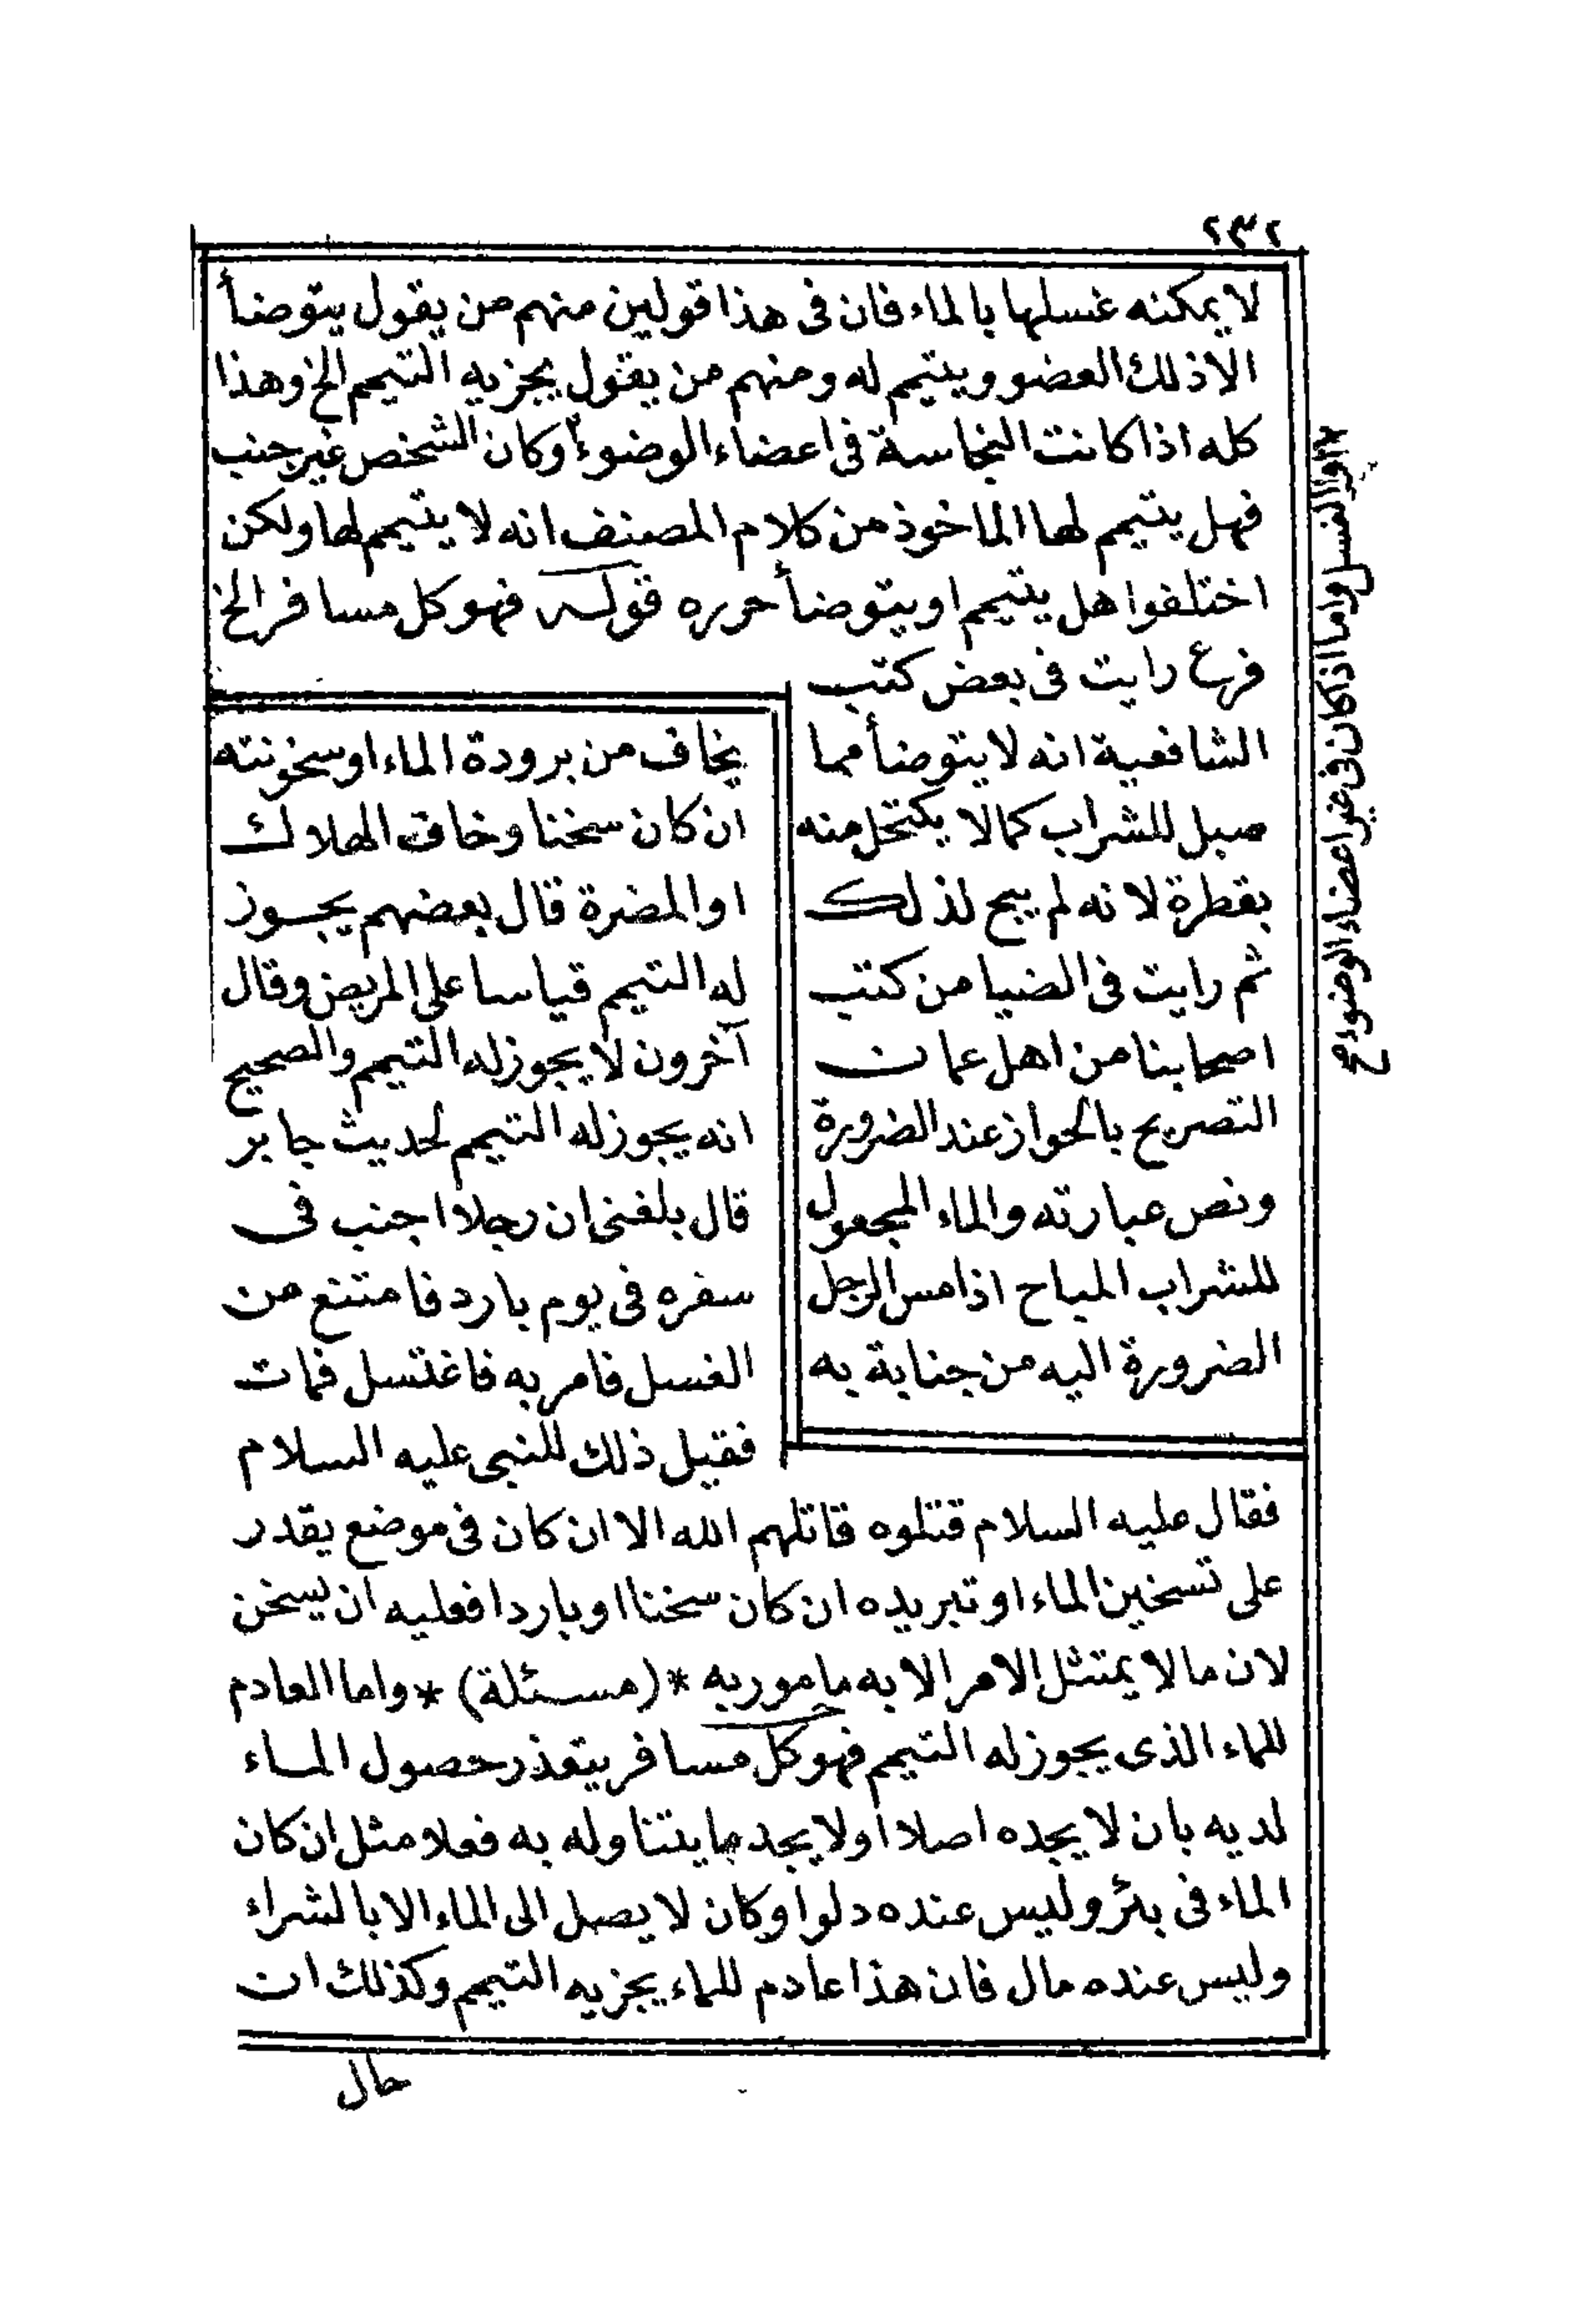 ٢٣٢
لا يمكنه غسلها بالماء فان فى هذا قولين منهم من يقول يتوضأ
الا ذلك العضو ويتيمم له ومنهم من يقول يجزيه التيمم الخ وهذا
كله اذا كانت النجاسة فى اعضاء الوضوء أو كان الشخص غير جنب
فهل يتيمم لها الماخوذ من كلام المصنف انه لا يتيمم لها ولكن
اختلفوا هل يتيمم او يتوضأ حرره قوله فهو كل مسافر الخ
فرع رايت فى بعض كتب
الشافعية انه لا يتوضأ مما
سبل للشراب كما لا يكتحل منه
بقطرة لانه لم يبح لذلك
ثم رايت فى الضيا من كتب
اصحابنا من اهل عمان
التصريح بالجواز عند الضرورة
ونص عبارته والماء المجعول
للشراب المباح اذا مس الرجل
الضرورة اليه من جنابة به
يخاف من برودة الماء او سخونته
ان كان سخنا وخاف الهلاك
او المضرة قال بعضهم يجوز
له التيمم قياسا على المريض وقال
آخرون لا يجوز له التيمم والصحيح
انه يجوز له التيمم لحديث جابر
قال بلغنى ان رجلا اجنب فى
سفره فى يوم بارد فامتنع من
الغسل فامر به فاغتسل فمات
فقيل ذلك للنبى عليه السلام
فقال عليه السلام قتلوه قاتلهم الله الا ان كان فى موضع يقدر
على تسخين الماء او تبريده ان كان سخنا او باردا فعليه ان يسخن
لان ما لا يمتثل الامر الا به مامور به * (مسئلة) * واما العادم
للماء الذى يجوز له التيمم فهو كل مسافر يتعذر حصول الماء
لديه بان لا يجده اصلا أو لا يجد ما يتناوله به فعلا مثل ان كان
الماء فى بئر وليس عنده دلو او كان لا يصل الى الماء الا بالشراء
وليس عنده مال فان هذا عادم للماء يجزيه التيمم وكذلك ان
حال
أو الغسل واما اذا كان فى غير اعضاء الوضوء صح